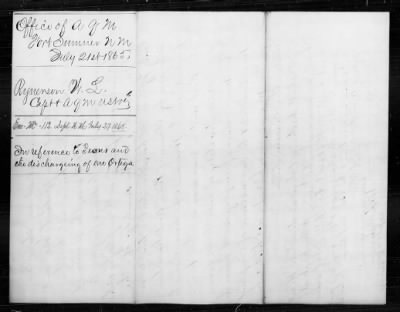 Office of A Q M
Fort Sumner N M
July 21st 1865
Rynerson W. L.
Capt & A Q M
Sept N M July 27 1865
In reference to and
the discharging of one Ortega